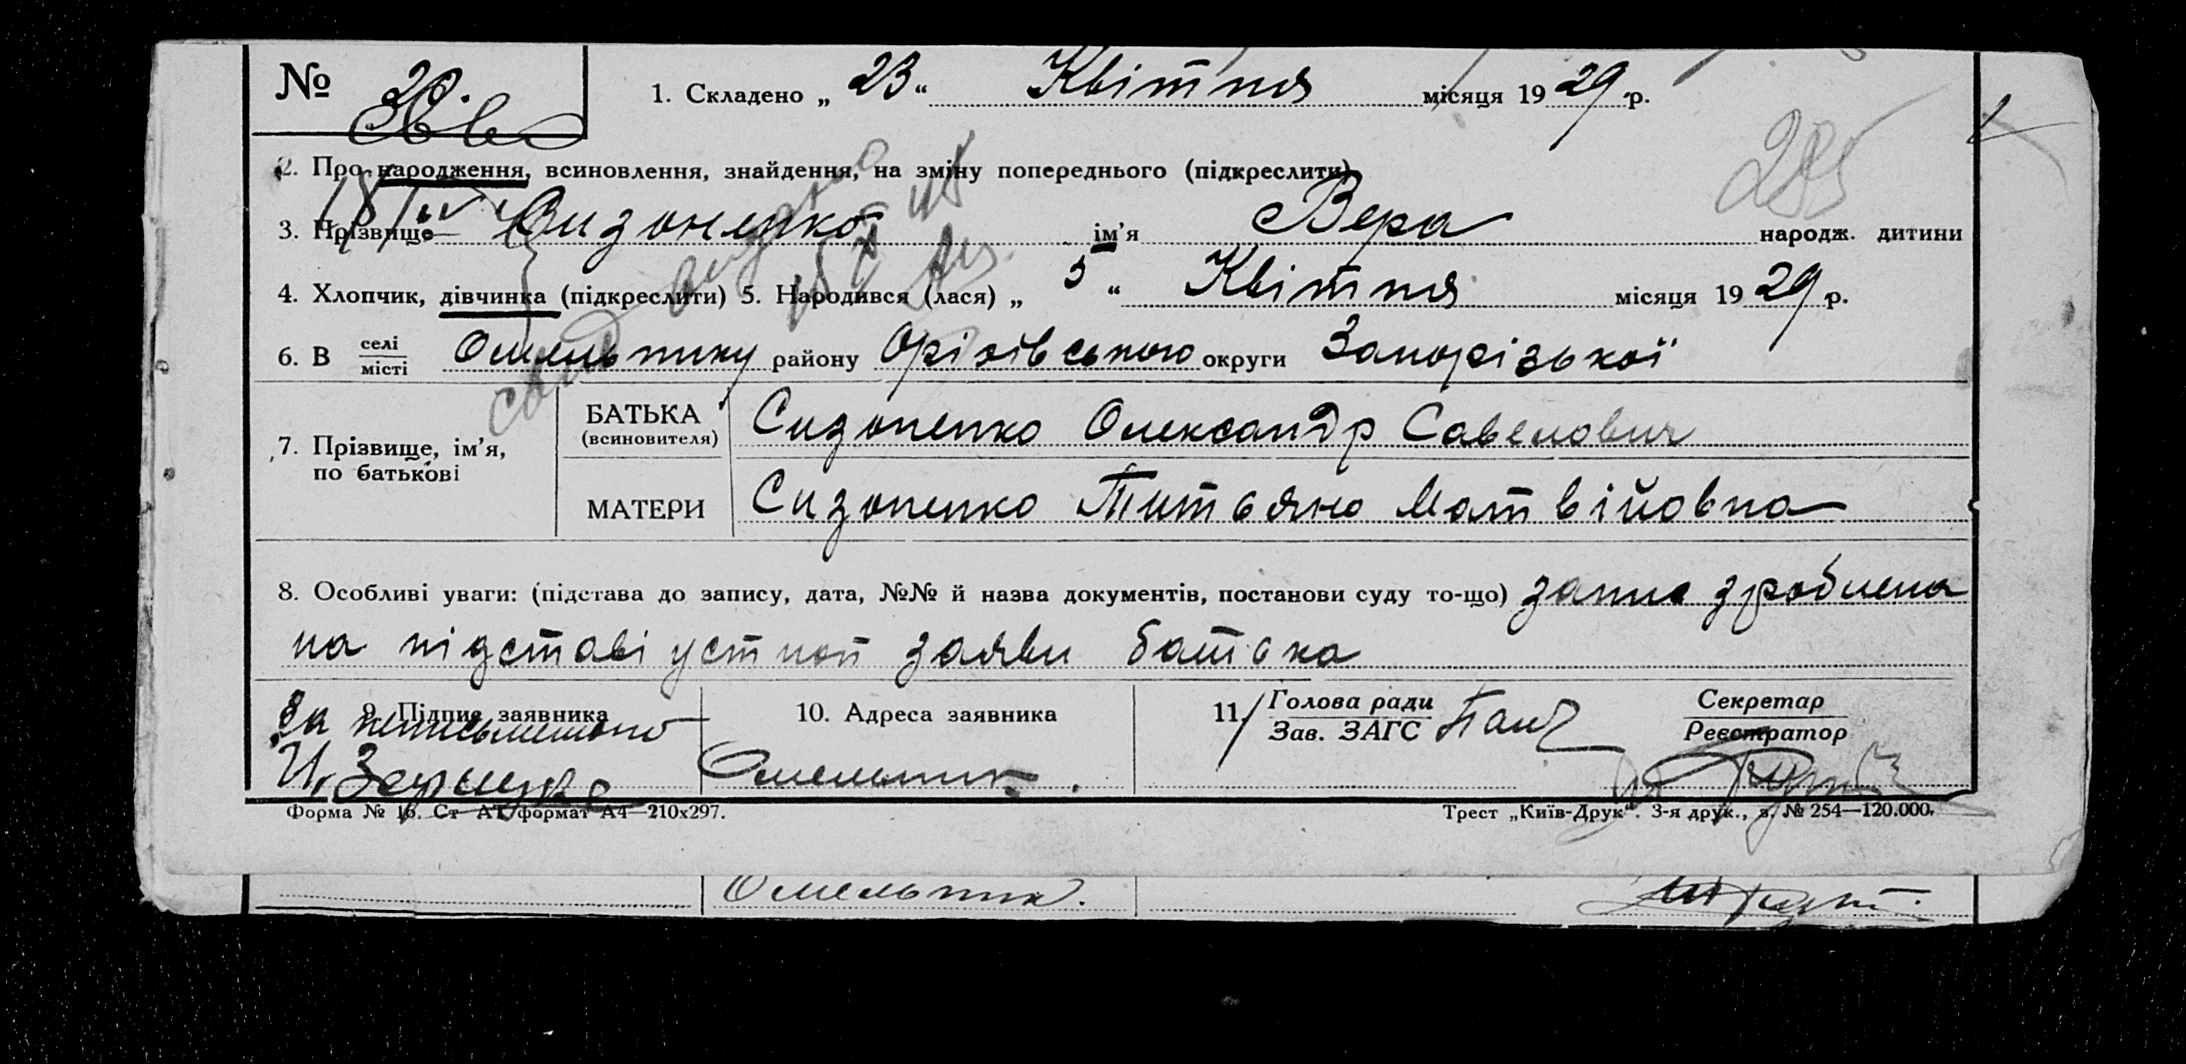 № 20.
1. Складено „ 23 “ Квітня місяця 1929 р.
285
2. Про народження, всиновлення, знайдення, на зміну попереднього (підкреслити)
3. Прізвище Сизоненко ім’я Вера народж. дитини
4. Хлопчик, дівчинка (підкреслити) 5. Народився (лася) „ 5 “ Квітня місяця 1929 р.
6. В селі / місті Омельнику району Оріхівського округи Запорізької
7. Прізвище, ім’я, по батькові
БАТЬКА (всиновителя) Сизоненко Олександр Савелович
МАТЕРИ Сизоненко Титьяна Матвійовна
8. Особливі уваги: (підстава до запису, дата, №№ й назва документів, постанови суду то-що) запис зроблена
на підставі устноі заяви батька
9. Підпис заявника 10. Адреса заявника 11. Голова ради / Зав. ЗАГС Секретар / Реєстратор
За неписьменого
Омельник.
Форма № 16. Ст АТ формат А4—210х297. Трест „Київ-Друк“. 3-я друк., з. № 254—120.000.
Омельник.